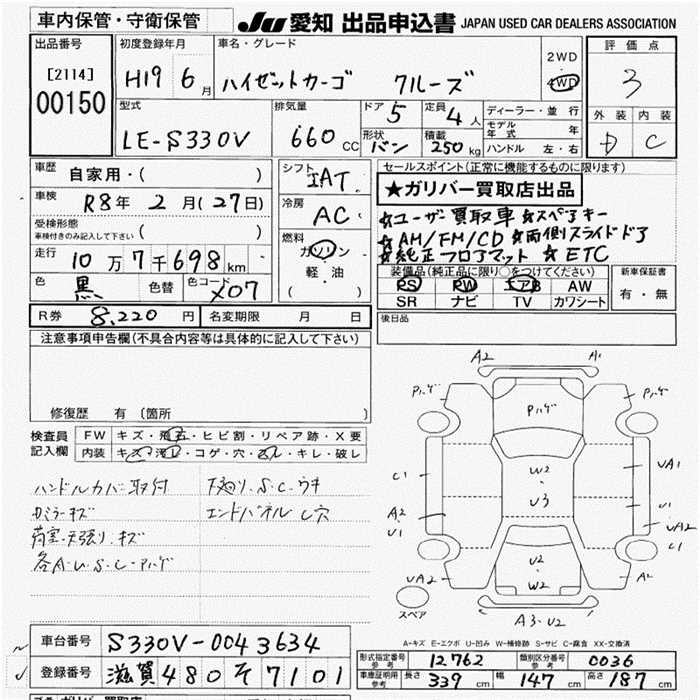 車内保管・守衛保管
JU 愛知 出品申込書 JAPAN USED CAR DEALERS ASSOCIATION
出品番号
[2114]
00150
初度登録年月
H19 6月
車名・グレード
ハイゼットカーゴ クルーズ
2WD
4WD
評価点
3
外装 内装
D C
型式
LE-S330V
排気量
660 CC
ドア 5
定員 4人
形状 バン
積載 250kg
ディーラー・並行
モデル年式 年
ハンドル 左・右
車歴
自家用・( )
車検
R8年 2月(27日)
受検形態
車検付きのみ記入して下さい ( )
走行
10万7千698km
色 黒
色替
色コード X07
シフト
IAT
冷房
AC
燃料
ガソリン
軽・油
( )
セールスポイント(正常に機能するものに限ります)
★ガリバー買取店出品
☆ユーザー買取車 ☆スペアキー
☆AM/FM/CD ☆両側スライドドア
☆純正フロアマット ☆ETC
装備品(純正品に限り○をつけてください)
PS PW エアB AW
SR ナビ TV カワシート
新車保証書
有・無
R券 8,220円
名変期限 月 日
後日品
注意事項申告欄(不具合内容等は具体的に記入して下さい)
修復歴 有 〔箇所 〕
検査員
記入欄
FW キズ・飛石・ヒビ割・リペア跡・X要
内装 キズ・汚レ・コゲ・穴・スレ・キレ・破レ
ハンドルカバー取付
カミラーキズ
荷室・天張り、キズ
各A・U・S・C・アハゲ
下廻り、S・C・ウキ
エンドパネルし穴
A2 A1
Pハゲ Pハゲ Pハゲ
W2
U3
C1
A2
U1
UA2
UA1
U1
UA2
C1
A2
U2
W2
A3・U2
スペア
A-キズ E-エクボ U-凹み W-補修跡 S-サビ C-腐食 XX-交換済
車台番号 S330V-0043634
登録番号 滋賀480そ7101
形式指定番号 参考 12762
類別区分番号 参考 0036
車庫証明用 参考 長さ 339cm 幅 147cm 高さ 187cm